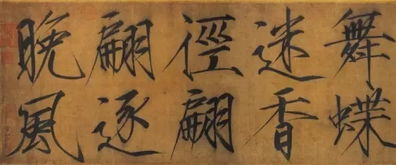 舞蝶
迷香
徑翩
翩逐
晚風